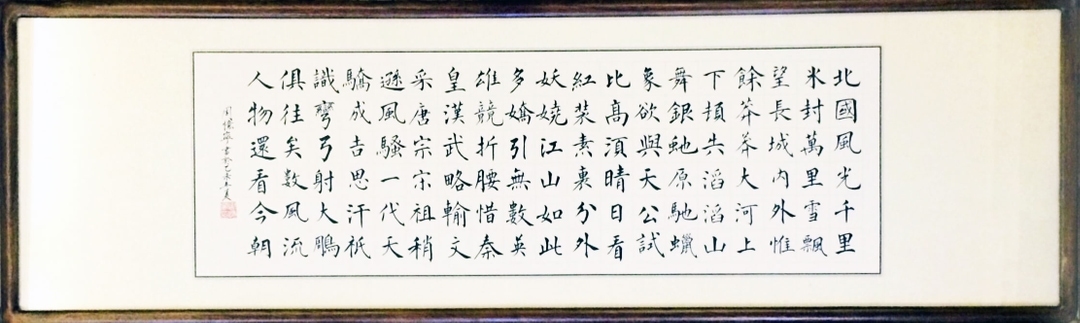 北國風光千里
氷封萬里雪飄
望長城内外惟
餘莽莽大河上
下頓失滔滔山
舞銀虵原馳蠟
象欲與天公試
比高須晴日看
紅装素裹分外
妖嬈江山如此
多嬌引無數英
雄競折腰惜秦
皇漢武略輸文
采唐宗宋祖稍
遜風騷一代天
驕成吉思汗祇
識彎弓射大鵰
俱往矣數風流
人物還看今朝
書於乙未夏